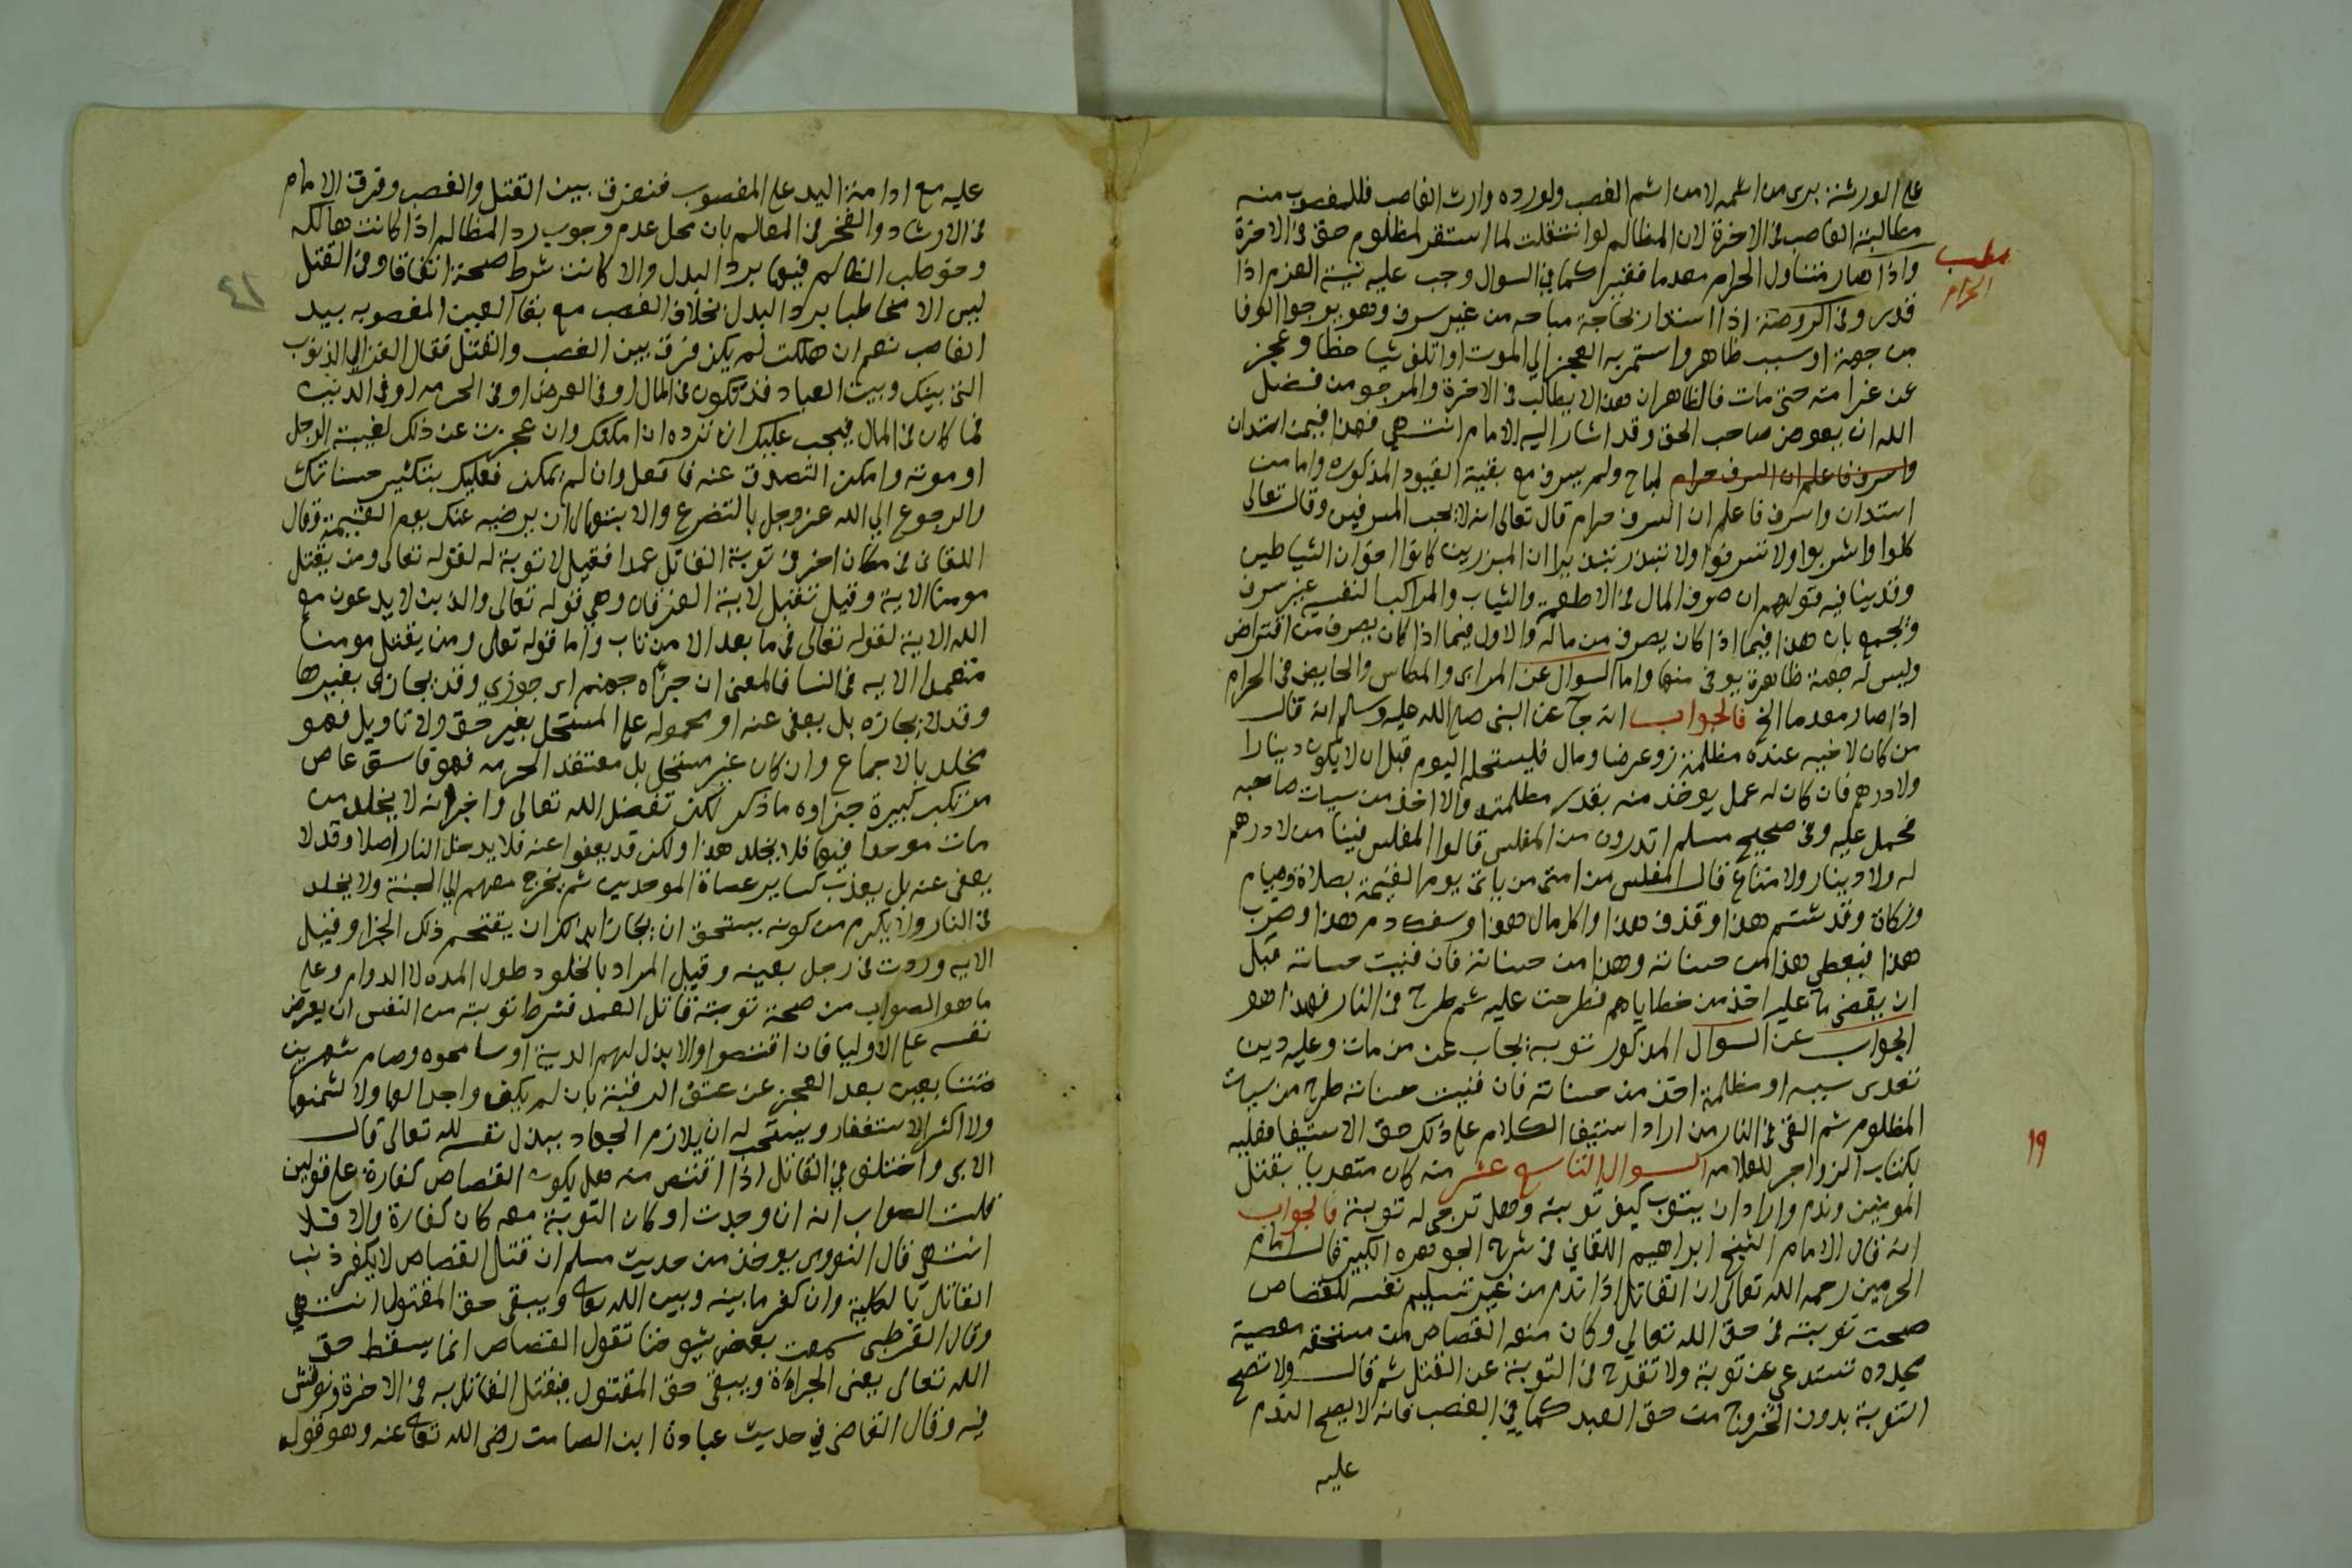 على الورثة برى من اثمه لا من اثم الغصب ولورده وارث الغاصب فللمغصوب منه
مطالبة الغاصب فى الاخرة لان المظالم لو انتقلت لما استقر لمظلوم حق فى الاخرة
مطلب
الحرام
واذا صار متناول الحرام معدما فقيرا كما في السوال وجب عليه نية العزم اذا
قدر وفى الروضة اذا استدان لحاجة مباحه من غير سرف وهو يرجوا الوفا
من جهة او سبب ظاهر واستمر به العجز الي الموت او اتلف شيا خطا وعجز
عن غرامته حتى مات فالظاهر ان هذا لا يطالب فى الاخرة والمرجو من فضل
الله ان يعوض صاحب الحق وقد اشار اليه الامام انتهي فهذا فيمن استدان
واسرف فاعلم ان السرف حرام لمباح ولم يسرف مع بقية القيود المذكوره واما من
استدان واسرف فاعلم ان السرف حرام قال تعالى انه لا يحب المسرفين وقال تعالى
كلوا واشربوا ولا تسرفوا ولا تبذر تبذيرا ان المبزرين كانوا اخوان الشياطين
وقد ينافيه قولهم ان صرف المال فى الاطعمة والثياب والمراكب النفيسه غير سرف
ويجمع بان هذا فيما اذا كان يصرف من ماله والاول فيما اذا كان يصرف من اقتراض
وليس له جهة ظاهرة يوفى منها واما السوال عن المرابى والمكاس والخايض فى الحرام
اذا صار معدما الخ فالجواب انه جآ عن النبى صلى الله عليه وسلم انه قال
من كان لاخيه عنده مظلمة زو عرضا ومال فليستحله اليوم قبل ان لا يكون دينارا
ولا درهم فان كان له عمل يوخذ منه بقدر مظلمته والا اخذ من سيات صاحبه
فحمل عليه وفى صحيح مسلم اتدرون من المفلس قالوا المفلس فينا من لا درهم
له ولا دينار ولا متاع قال المفلس من امتى من ياتى يوم القيمة بصلاة وصيام
وزكاة وقد شتم هذا وقذف هذا واكل مال هذا وسفك دم هذا وضرب
هذا فيعطي هذا من حسناته وهذا من حسناته فان فنيت حسناته قبل
ان يقضى ما عليه اخذ من خطاياهم فطرحت عليه ثم طرح فى النار فهذا هو
الجواب عن السوال المذكور وبه يجاب عن من مات وعليه دين
تعدى سببه او مظلمة اخذ من حسناته فان فنيت حسناته طرح من سيات
المظلوم ثم القى فى النار من اراد استيفا الكلام على ذلك حق الاستيفا فعليه
بكتاب الزواجر للعلامه السوال التاسع عشر من كان متعديا بقتل
١٩
المومنين وندم واراد ان يتوب كيف توبته وهل ترجى له توبة فالجواب
انه قال الامام الشيخ ابراهيم اللقاني فى شرح الجوهره الكبير قال امام
الحرمين رحمه الله تعالى ان القاتل اذا ندم من غير تسليم نفسه للقصاص
صحت توبته فى حق الله تعالى وكان منعه القصاص من مستحقه معصية
مجدده تستدعى عن توبة ولا تقدح فى التوبة عن القتل ثم قال ولا تصح
التوبة بدون الخروج من حق العبد كما في الغصب فانه لا يصح الندم
عليه
عليه مع ادامة اليد على المغصوب فنفرق بين القتل والغصب وفرق الامام
فى الارشاد والفخر فى المعالم بان محل عدم وجوب رد المظالم اذا كانت هالكه
وخوطب الظالم فيها برد البدل والا كانت شرط صحة اتفاقا وفى القتل
٤١
ليس الا مخاطبا برد البدل بخلاف الغصب مع بقا العين المغصوبه بيد
الغاصب نعم ان هلكت لم يكن فرق بين الغصب والقتل فقال الغزالي الذنوب
التى بينك وبين العباد قد تكون فى المال او فى العرض او فى الحرمه او فى الدين
فما كان فى المال فيجب عليك ان ترده ان امكنك وان عجزت عن ذلك لغيبة الرجل
او موته وامكن التصدق عنه فافعل وان لم يمكن فعليك بتكثير حسناتك
والرجوع الي الله عز وجل بالتضرع والابتهال ان يرضيه عنك يوم القيمة وقال
اللقانى فى مكان اخر فى توبة القاتل عمدا فقيل لا توبة له لقوله تعالى ومن يقتل
مومنا الاية وقيل تقبل لاية الفرقان وهي قوله تعالى والذين لا يدعون مع
الله الاية لقوله تعالى فى ما بعد الا من تاب واما قوله تعالى ومن يقتل مومنا
متعمدا الايه فى النسا فالمعنى ان جزاه جهنم اى جوزي وقد يجازى بغيرها
وقد لا يجازه بل يعفى عنه او محموله على المستحل بغير حق ولا تاويل فهو
يخلد بالاجماع وان كان غير مستحل بل معتقد الحرمه فهو فاسق عاص
مرتكب كبيرة جزاوه ما ذكر لكن تفضل الله تعالى واخبرانه لا يخلد من
مات موحدا فيها فلا يخلد هذا ولكن قد يعفوا عنه فلا يدخل النار اصلا وقد لا
يعفى عنه بل يعذب كساير عصاة الموحدين ثم يخرج معهم الي الجنة ولا يخلد
فى النار ولا يلزم من كونه يستحق ان يجازا بذلك ان يتحتم ذلك الجزا وقيل
الايه وردت فى رجل بعينه وقيل المراد بالخلود طول المده لا الدوام وعلى
ما هو الصواب من صحة توبة قاتل العمد فشرط توبته من النفس ان يعرض
نفسه على الاوليا فان اقتصوا والا بذل لهم الدية او سامحوه وصام شهرين
متتابعين بعد العجز عن عتق الرقبة بان لم يكن واجدا لها ولا لثمنها
ولا اكثر الاستغفار ويستحب له ان يلازم الجهاد ببذل نفسه لله تعالى قال
الابى واختلف في القاتل اذا اقتص منه هل يكون القصاص كفارة على قولين
قلت الصواب انه ان وجدت او كان التوبة معه كان كفارة والا فلا
انتهي قال النووى يوخذ من حديث مسلم ان قتل القصاص لا يكفر ذنب
القاتل بالكلية وان كفر ما بينه وبين الله تعالى ويبقى حق المقتول انتهي
وقال القرطبى سمعت بعض شيوخنا تقول القصاص انما يسقط حق
الله تعالى يعنى الجراءة ويبقى حق المقتول فيقتل القاتل به فى الاخرة ونوقش
فيه وقال القاضى في حديث عبادة ابن الصامت رضى الله تعالى عنه وهو قوله